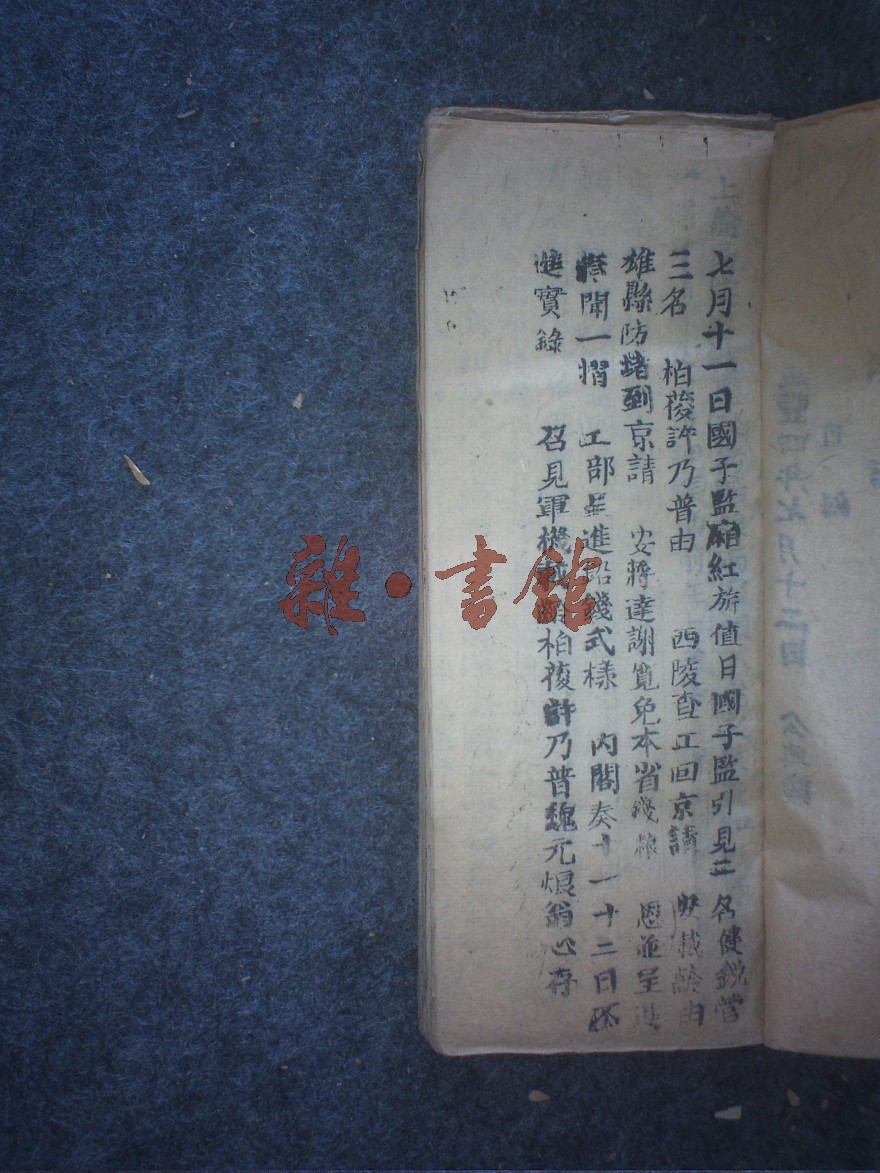 七月十一日國子監廂紅旂值日國子監引見二名健銳營
三名 柏葰許乃普由 西陵查工回京請 安載齡由
雄縣防堵到京請 安蔣達謝寬免本省錢粮 恩並呈進
聞一摺 工部呈進鉛錢式樣 內閣奏十一十二日恭
進實錄 召見軍機載齡柏葰許乃普魏元烺翁心存
雜·書館